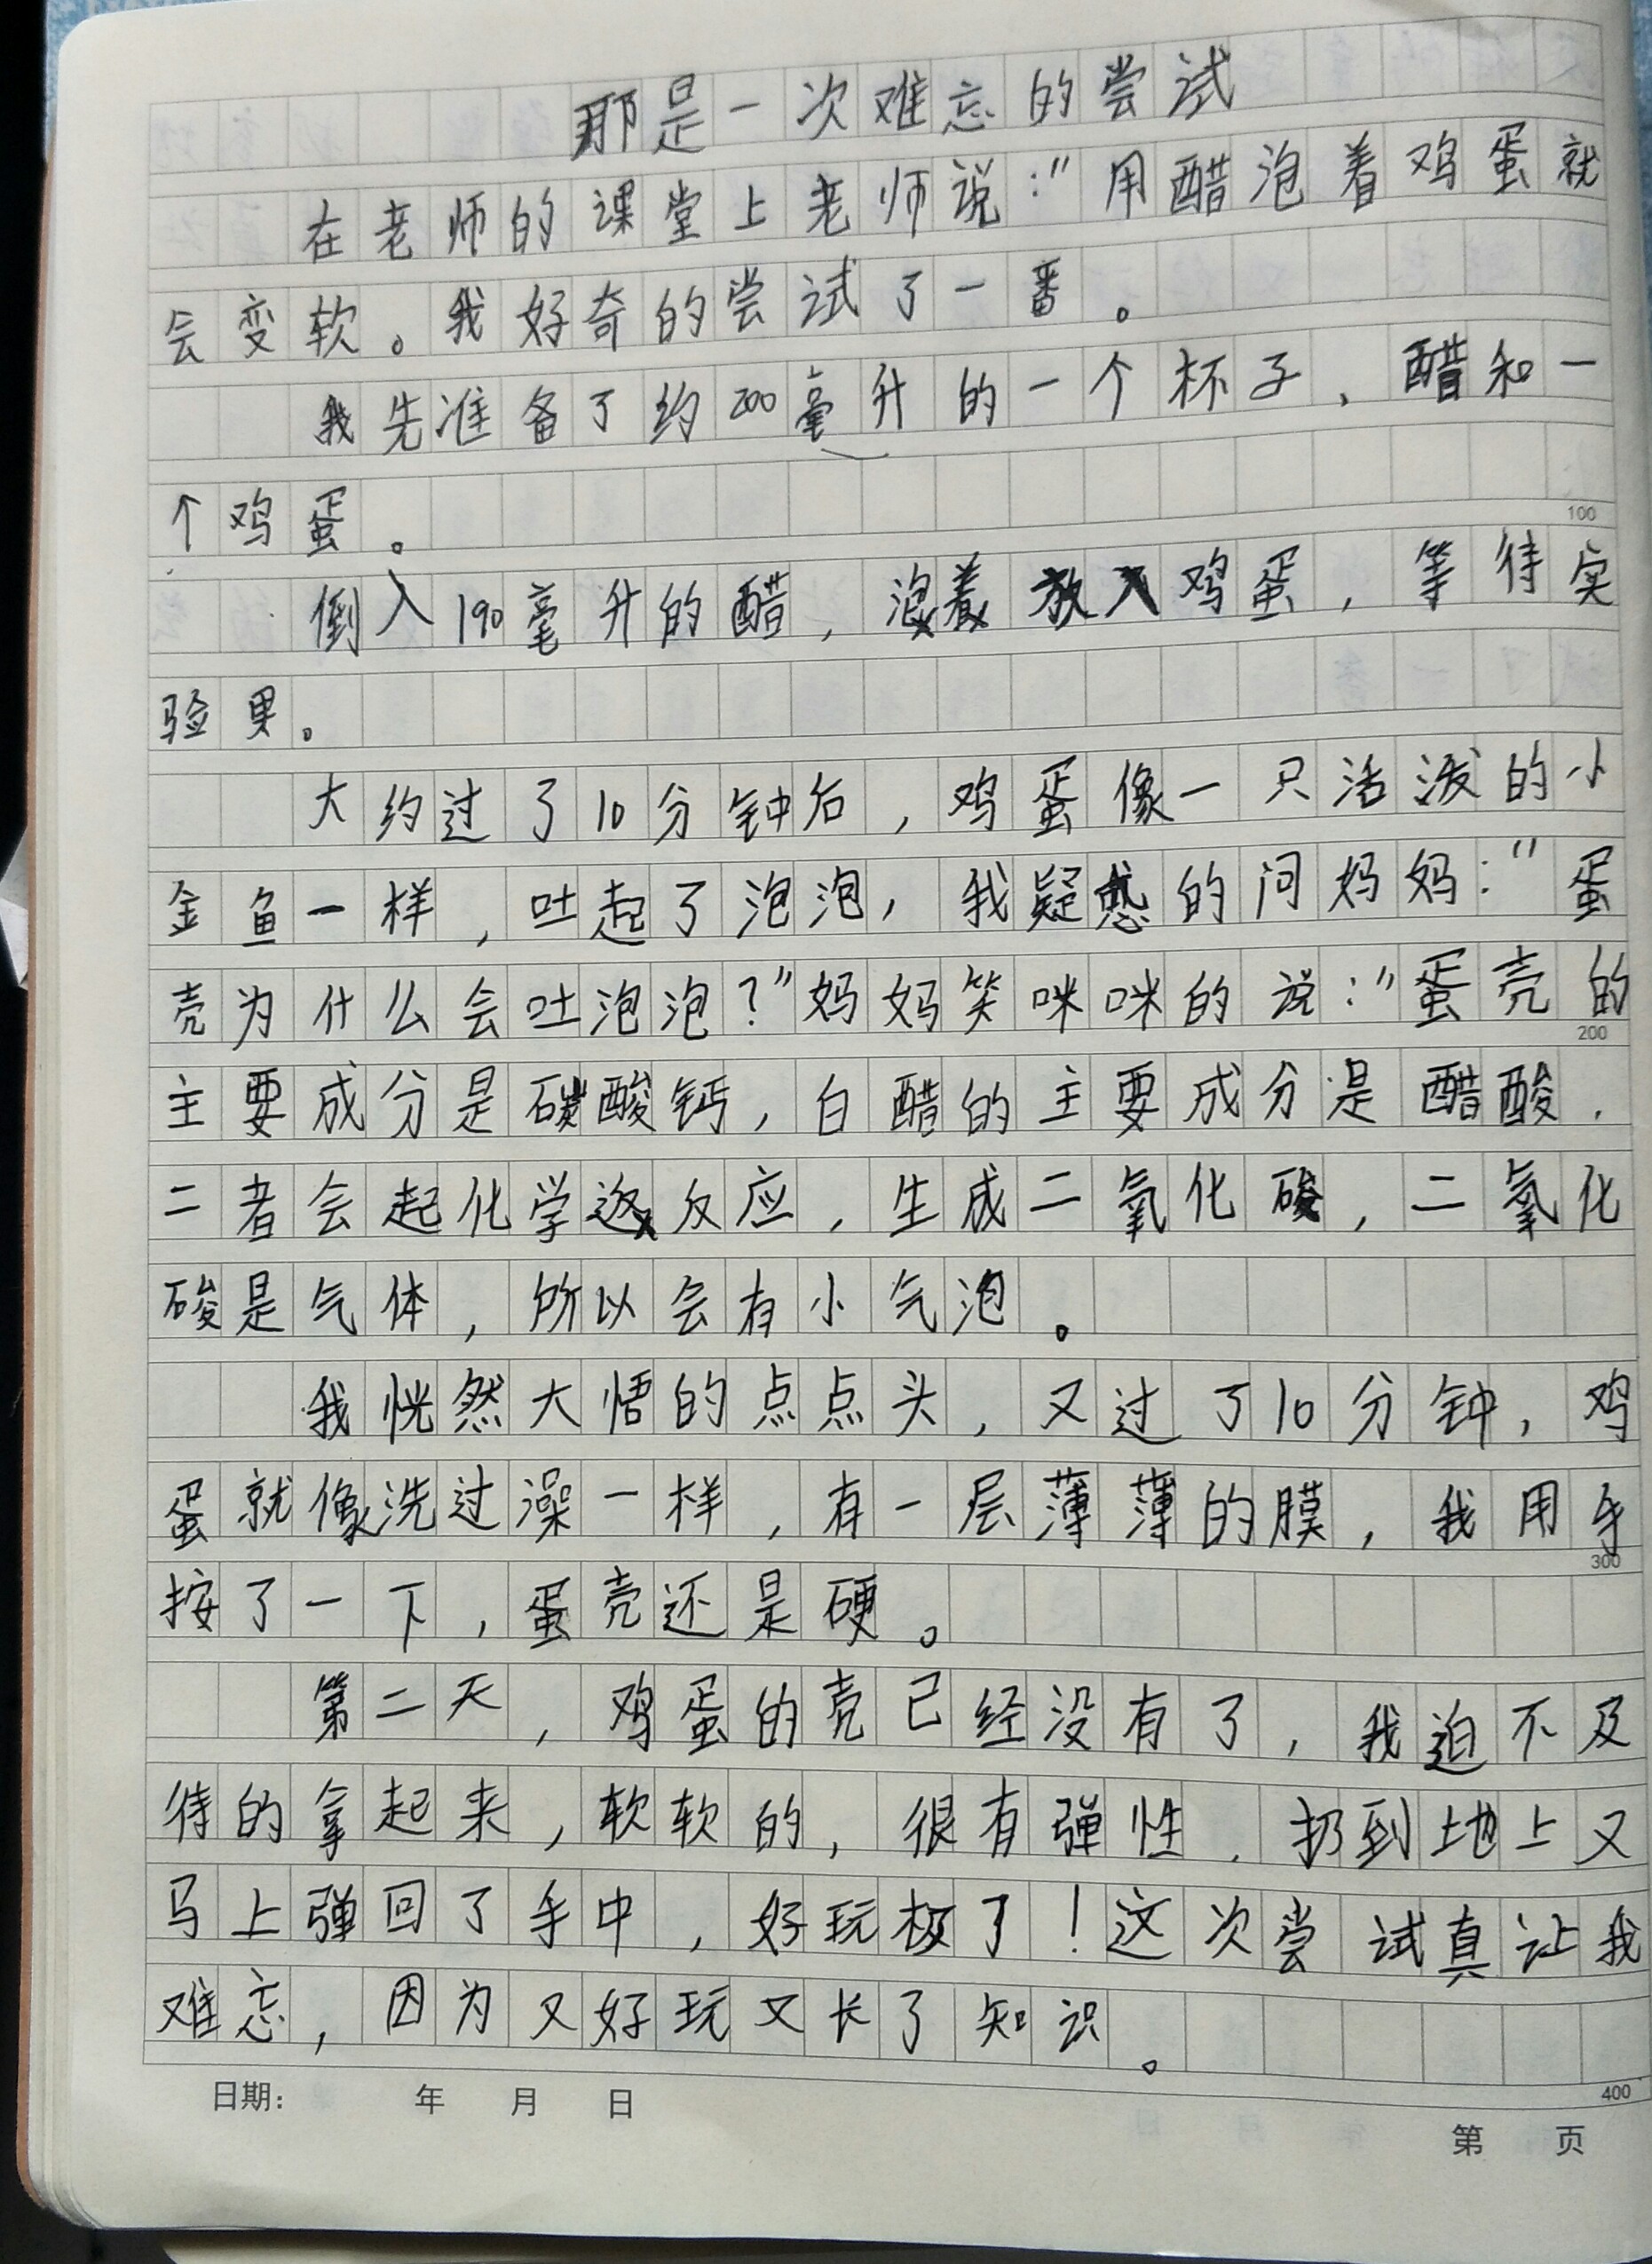 那是一次难忘的尝试
在老师的课堂上老师说:"用醋泡着鸡蛋就
会变软。我好奇的尝试了一番。
我先准备了约200毫升的一个杯子、醋和一
个鸡蛋。
100
倒入190毫升的醋,放入鸡蛋,等待实
验果。
大约过了10分钟后,鸡蛋像一只活泼的小
金鱼一样,吐起了泡泡,我疑惑的问妈妈:"蛋
壳为什么会吐泡泡?"妈妈笑咪咪的说:"蛋壳的
200
主要成分是碳酸钙,白醋的主要成分是醋酸.
二者会起化学反应,生成二氧化酸,二氧化
酸是气体,所以会有小气泡。
我恍然大悟的点点头,又过了10分钟,鸡
蛋就像洗过澡一样,有一层薄薄的膜,我用手
300
按了一下,蛋壳还是硬。
第二天,鸡蛋的壳已经没有了,我迫不及
待的拿起来,软软的,很有弹性.扔到地上又
马上弹回了手中,好玩极了!这次尝试真让我
难忘,因为又好玩又长了知识。
400
日期: 年 月 日
第 页